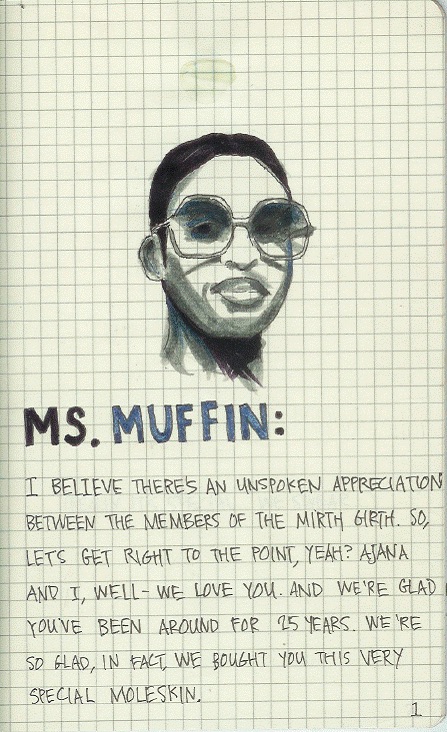 MS. MUFFIN:
I BELIEVE THERE'S AN UNSPOKEN APPRECIATION
BETWEEN THE MEMBERS OF THE MIRTH GIRTH. SO,
LET'S GET RIGHT TO THE POINT, YEAH? AJANA
AND I, WELL- WE LOVE YOU. AND WE'RE GLAD
YOU'VE BEEN AROUND FOR 25 YEARS. WE'RE
SO GLAD, IN FACT, WE BOUGHT YOU THIS VERY
SPECIAL MOLESKIN.
1